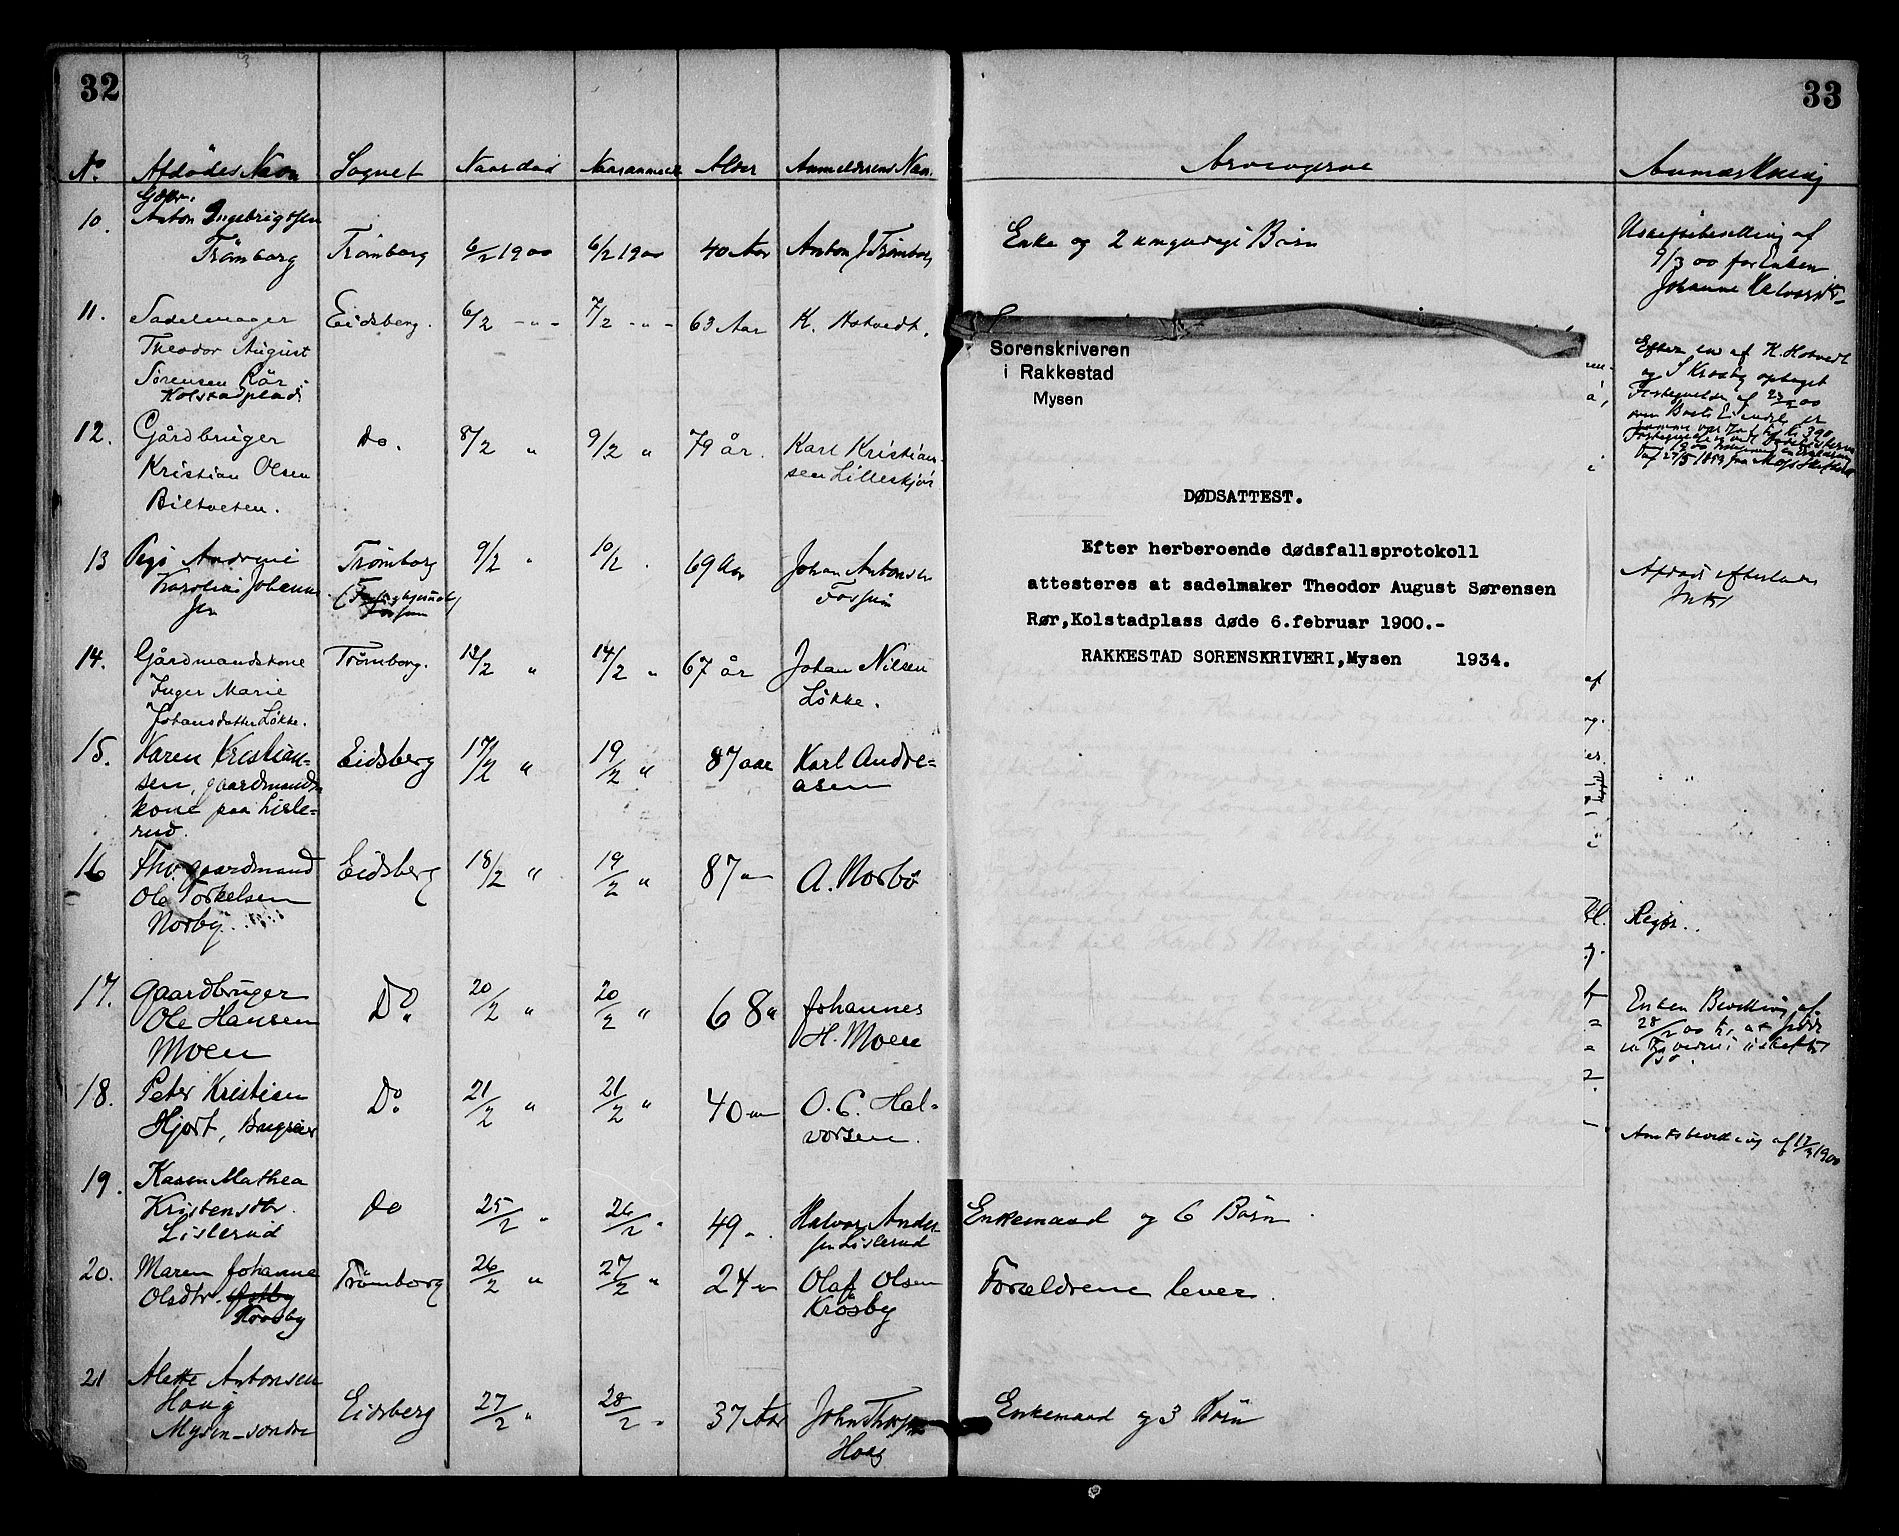 32
33
No. Afdødes Navn Sognet Naar død Naar anmeldt Alder Anmelderens Navn Arvingerne Anmærkning
Gbr.
10. Anton Ingebrigtsen
Trömborg Trömborg 6/2 1900 6/2 1900 40 Aar Anton J Trömborg Enke og 2 umyndige Börn
af
9/3 00 for Enken
Johanne
11. Sadelmager Eidsberg. 6/2 -"- 7/2 -"- 63 Aar K. Hotvedt.
Theodor August
Sørensen Rör
Kolstadplads
Efter en af K. Hotvedt
og S Krosby optaget
af 23/2 00
Sorenskriveren
i Rakkestad
Mysen
12. Gårdbruger Do. 8/2 " 9/2 " 79 år. Karl Kristian-
Kristian Olsen sen Lilleskjør
Biltveten.
DØDSATTEST.
Efter herberoende dødsfallsprotokoll
attesteres at sadelmaker Theodor August Sørensen
Rør,Kolstadplass døde 6.februar 1900.-
RAKKESTAD SORENSKRIVERI,Mysen 1934.
13 Pige Andrine Trömborg 9/2 " 10/2 . 69 Aar Johan Antonsen
Karoline Johann Fossum
sen
Fossum
Afdøde efterlader
Intet
14. Gårdmandskone Trömborg. 13/2 " 14/2 " 67 år Johan Nilsen
Inger Marie Løkke.
Johansdatter Løkke.
15. Karen Kristian- Eidsberg 17/2 " 19/2 " 87 aar Karl Andre-
sen, gaardmands asen
kone paa Lisle-
rud.
16 Fhv. gaardmand Eidsberg 18/2 " 19/2 " 87 " A. Norbø
Ole Torkelsen
Norby.
17. Gaardbruger Do. 20/2 " 20/2 " 68 " Johannes
Ole Hansen H. Moen
Moen
Enken Bevilling af
28/2 00
18. Peter Kristian Do. 21/2 " 21/2 " 40 " O. C. Hal-
Hjort, vorsen.
Amtsbevilling af 17/3 1900
19. Karen Mathea
Kristensdtr. Do 25/2 " 26/2 " 49 " Halvor Ander- Enkemand og 6 Börn.
Lislerud sen Lislerud
20. Maren Johanne Trömborg 26/2 " 27/2 " 24 " Olaf Olsen Forældrene lever.
Olsdtr. Krosby
Krosby
21 Alette Antonsen
Haug Eidsberg 27/2 " 28/2 " 37 Aar John Enkemand og 3 Börn
Mysen-søndre Haug